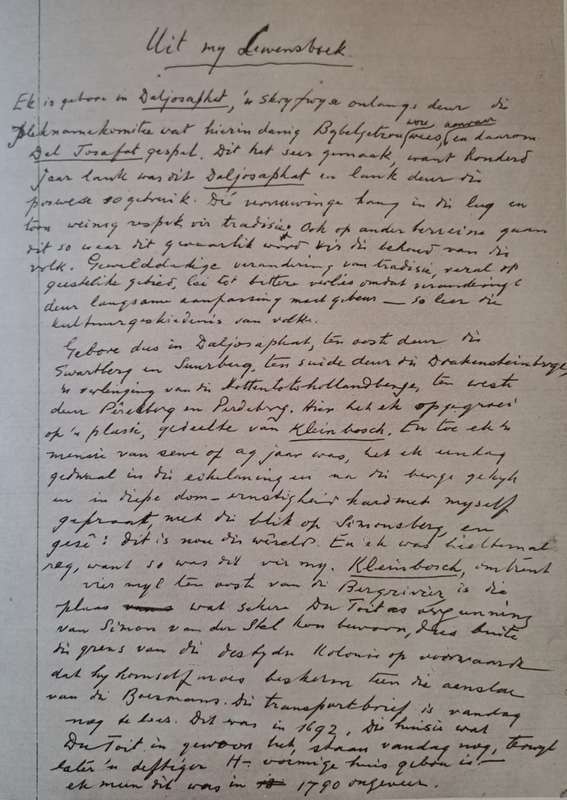 Uit my Lewensboek.
Ek is gebore in Daljosaphat, 'n skryfwyse onlangs deur die
Pleknamekomitee wat hierin danig Bybelgetrou wou wees, en daarom
Dal Josafat gespel. Dit het seer gemaak, want honderd
jaar lank was dit Daljosaphat en lank deur die
poswese so gebruik. Die vernuwinge hang in die lug en
toon weinig respek vir tradisie. Ook op ander terreine gaan
dit so waar dit gevaarlik word vir die behoud van die
volk. Gewelddadige verandering van tradisie, veral op
geestelike gebied, lei tot bittere verlies omdat verandering
deur langsame aanpassing moet gebeur — so leer die
kultuurgeskiedenis van volke.
Gebore dus in Daljosaphat, ten oost deur die
Swartberg en Suurberg, ten suide deur die Drakensteinberge,
'n verlenging van die Hottentotshollandberge, ten weste
deur Pêrelberg en Perdeberg. Hier het ek opgegroei
op 'n plasie, gedeelte van Kleinbosch. En toe ek 'n
mensie van sewe of ag jaar was, het ek eendag
gedwaal in die eikelaning en na die berge gekyk
en in diepe dom-ernstigheid hard met myself
gepraat, met die blik op Simonsberg, en
gesê: dit is nou die wêreld. En ek was heeltemal
reg, want so was dit vir my. Kleinbosch, omtrent
vier myl ten ooste van die Bergrivier is die
plaas wat sekere Du Toit as vergunning
van Simon van der Stel kon bewoon, dus buite
die grens van die destydse Kolonie op voorwaarde
dat hy homself moes beskerm teen die aanslae
van die Boesmans. Die transportbrief is vandag
nog te lees. Dit was in 1692, die huisie wat
Du Toit in gewoon het, staan vandag nog, terwyl
later 'n deftiger H-vormige huis gebou is —
ek meen dit was in 1790 ongeveer.